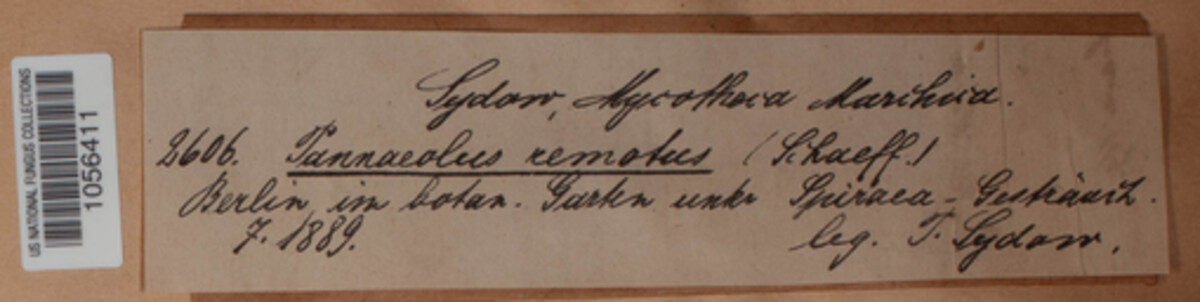 US NATIONAL FUNGUS COLLECTIONS
1056411
Sydow, Mycotheca Marchica.
2606. Pannaeolus remotus (Schaeff.)
Berlin im botan. Garten unter Spiraea-Gesträuch.
7. 1889. leg. P. Sydow.